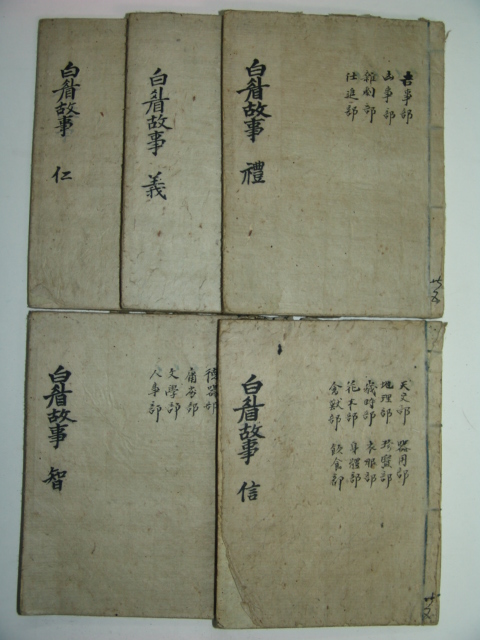 白眉故事 仁
白眉故事 義
吉事部
凶事部
仕進部
白眉故事 禮
文學部
人事部
白眉故事 智
天文部 器用部
地理部 珍寶部
歲時部 衣服部
花木部 身體部
禽獸部 飲食部
白眉故事 信